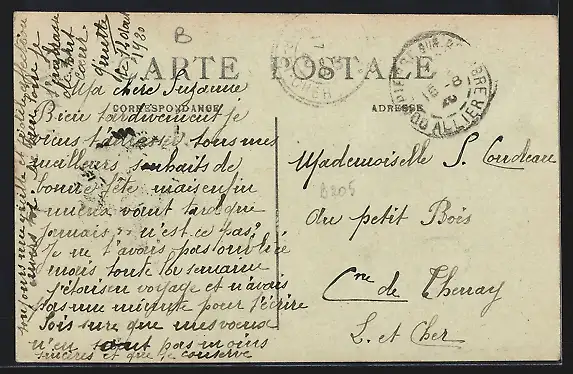 CARTE POSTALE
CORRESPONDANCE
ADRESSE
B
Ma chère Suzanne
Bien tardivement je
viens t'adresser tous mes
meilleurs souhaits de
bonne fête mais enfin
mieux vaut tard que
jamais n'est ce pas,
Je ne t'avais pas oubliée
mais toute la semaine
j'étais en voyage et n'avais
pas une minute pour t'écrire
sois sure que mes voeux
n'en sont pas moins
sincères et que je conserve
toujours
1920
Mademoiselle S. Coudeau
B205
au petit Bois
Cne de Thenay
L. et Cher
ALLIER
CHER